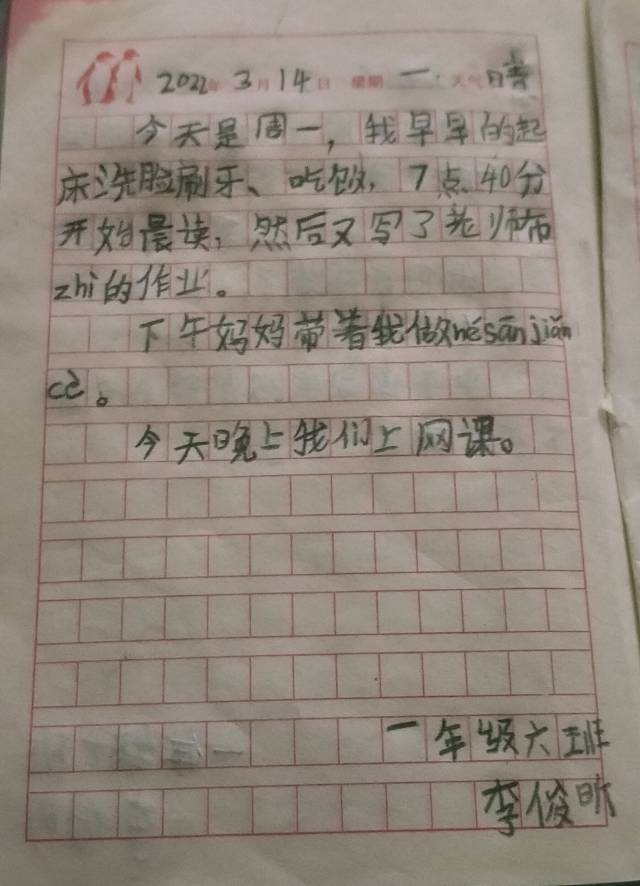 2022年 3月14日 星期一 天气 晴
今天是周一，我早早的起
床洗脸刷牙、吃饭，7点40分
开始晨读，然后又写了老师布
zhì的作业。
下午妈妈带着我做hésānjiǎn
cè。
今天晚上我们上网课。
一年级六班
李俊昕